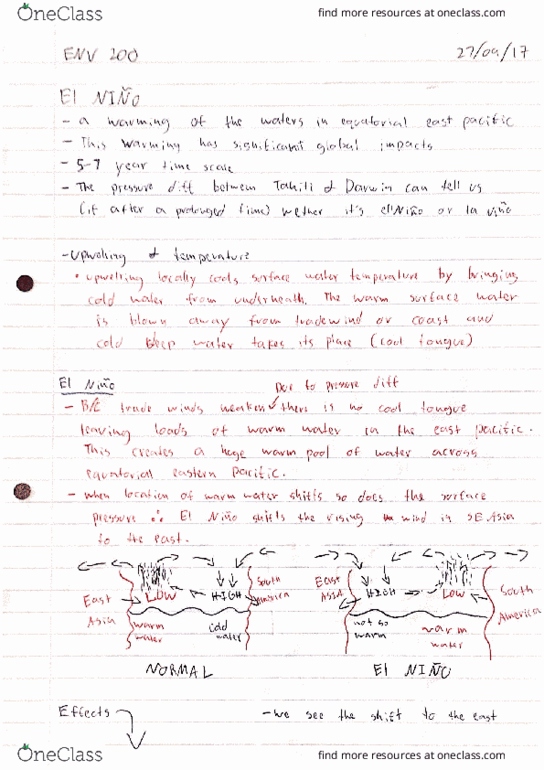 OneClass
find more resources at oneclass.com
ENV 200
27/09/17
El NIÑO
- a warming of the waters in equatorial east pacific
- This warming has significant global impacts
- 5-7 year time scale
- The pressure diff between Tahiti & Darwin can tell us
(if after a prolonged time) wether it's el Niño or la niño
- Upwelling & temperature
• upwelling locally cools surface water temperature by bringing
cold water from underneath. The warm surface water
is blown away from tradewind or coast and
cold deep water takes its place (cool tongue)
El Niño
Due to pressure diff
- B/c trade winds weaken there is no cool tongue
leaving loads of warm water in the east pacific.
This creates a huge warm pool of water across
equatorial eastern pacific.
- when location of warm water shifts so does the surface
pressure ∴ El Niño shifts the rising wind in SE Asia
to the east.
East Asia
LOW
HIGH
South America
warm water
cold water
NORMAL
East ASIA
HIGH
LOW
South America
not so warm
warm water
El NIÑO
Effects
- we see the shift to the east
OneClass
find more resources at oneclass.com